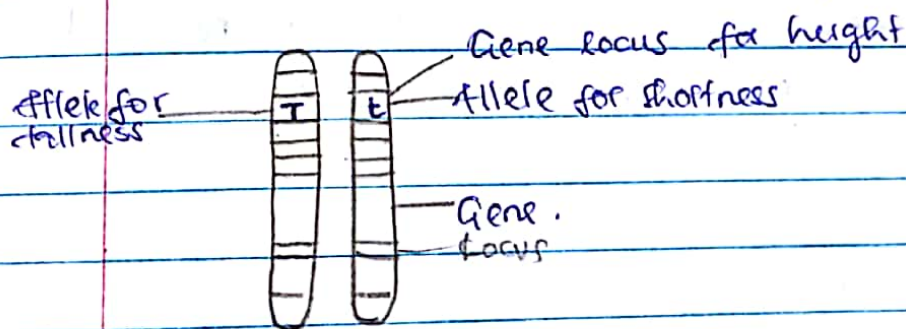 Gene locus for height
Allele for
tallness
T
t
Allele for shortness
Gene.
Locus